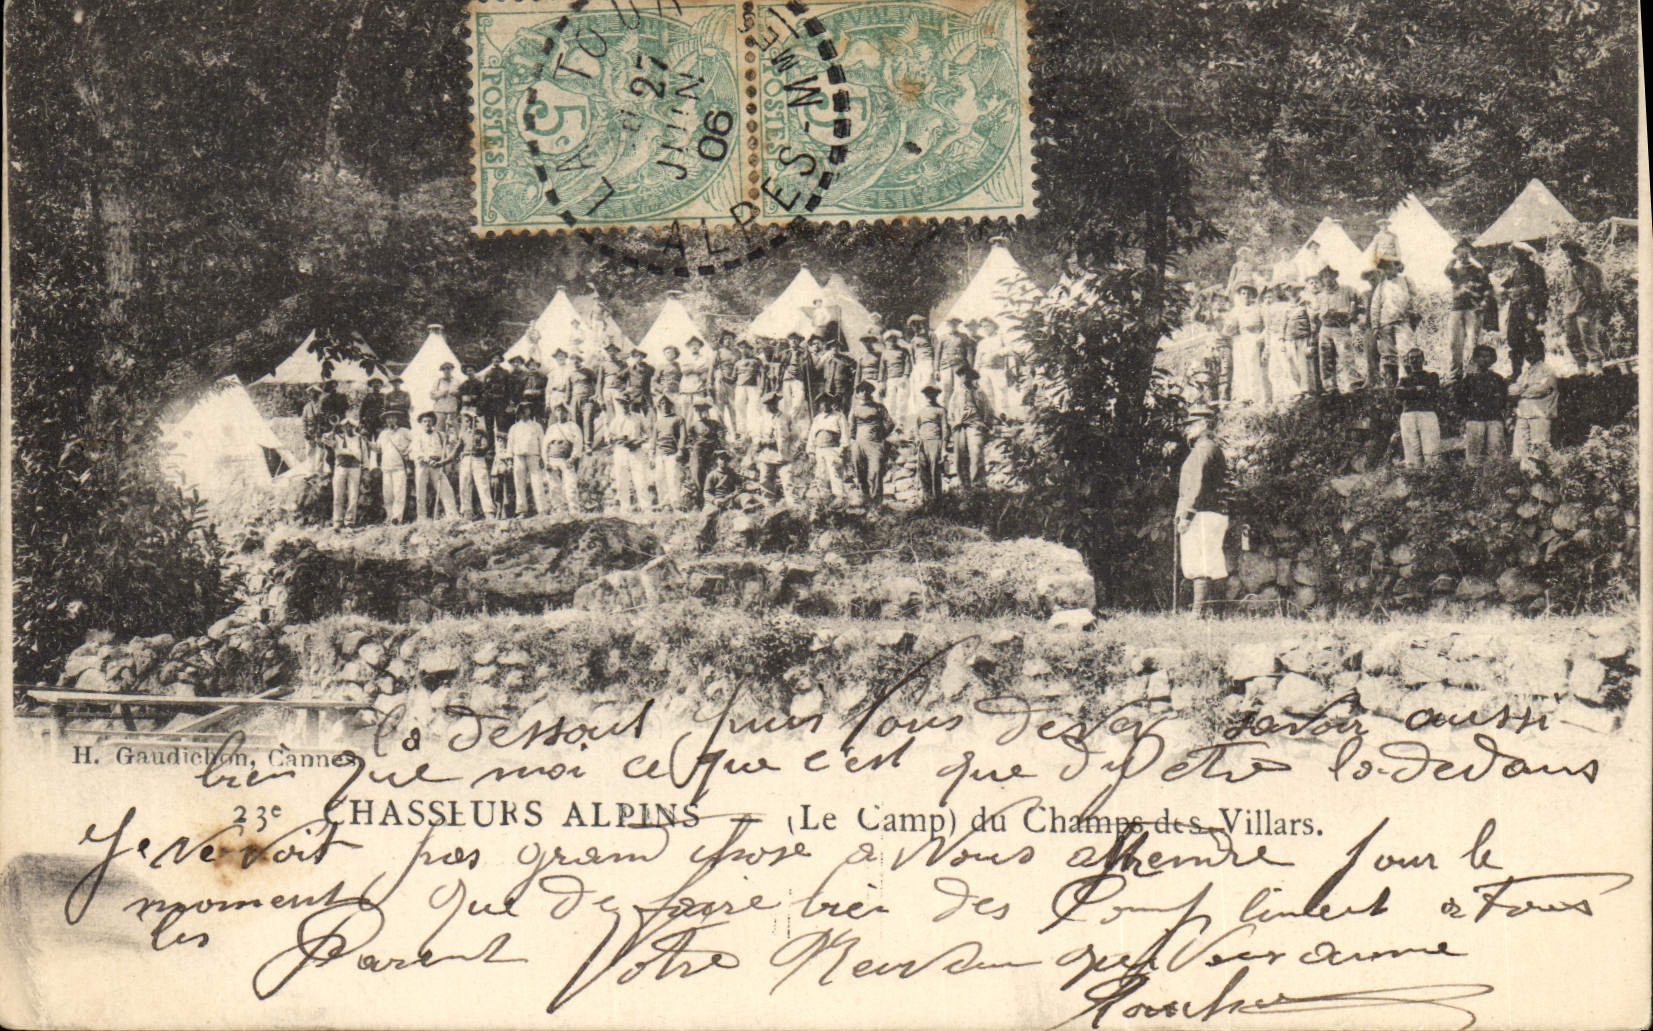 POSTES 5c
POSTES 5c
LA TOUR
27
JUIN
06
ALPES-MMES
la dessout puis vous devez savoir aussi
H. Gaudichon, Cannes
bien que moi ce que c'est que dy etre la-dedans
23e CHASSEURS ALPINS — (Le Camp) du Champs des Villars.
Je ne voit pas grand chose a vous attendre pour le
moment que de faire bien des Compliment a Tous
les Parent Votre qui vous aime